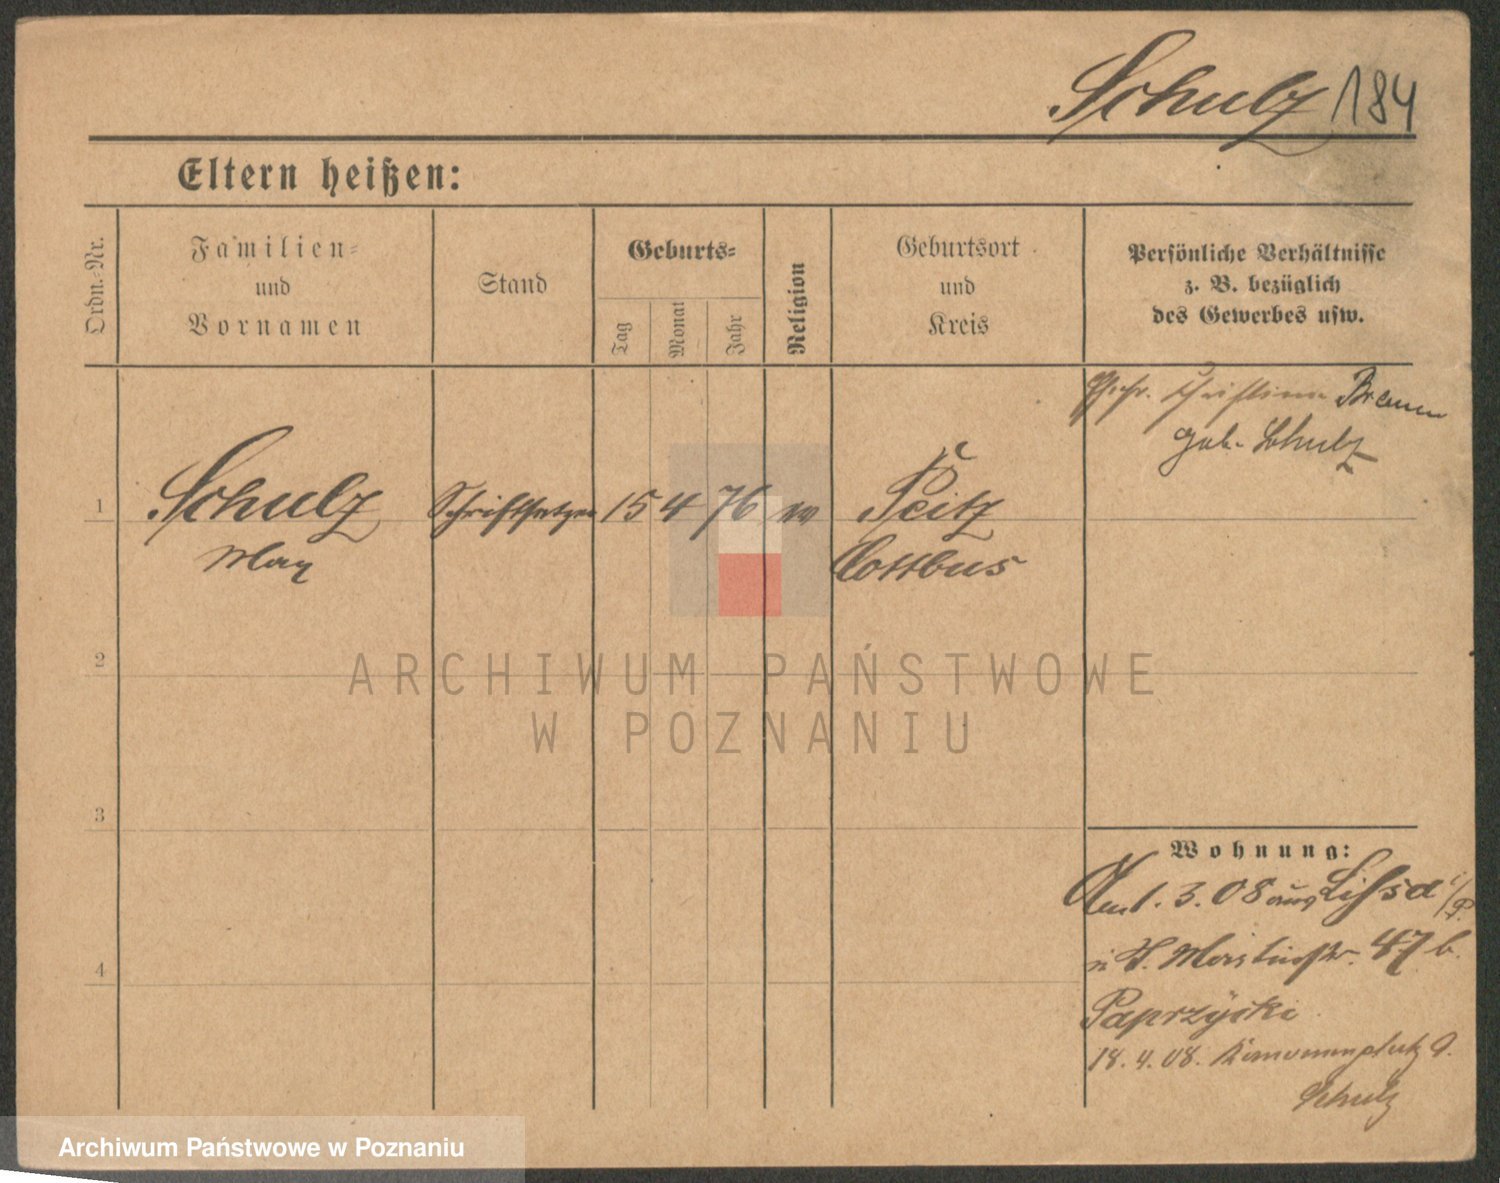 Schulz 184
Eltern heißen:
Ordn.-Nr.
Familien-
und
Vornamen
Stand
Geburts-
Tag
Monat
Jahr
Religion
Geburtsort
und
Kreis
Persönliche Verhältnisse
z. B. bezüglich
des Gewerbes usw.
geb. Schulz
1
Schulz
Max
Schriftsetzer
15 4 76
Peitz
Cottbus
2
3
4
Wohnung:
1.3.08 aus Lissa i/P.
47 b.
Paprzycki
18.4.08. 9.
Schulz
ARCHIWUM PAŃSTWOWE
W POZNANIU
Archiwum Państwowe w Poznaniu